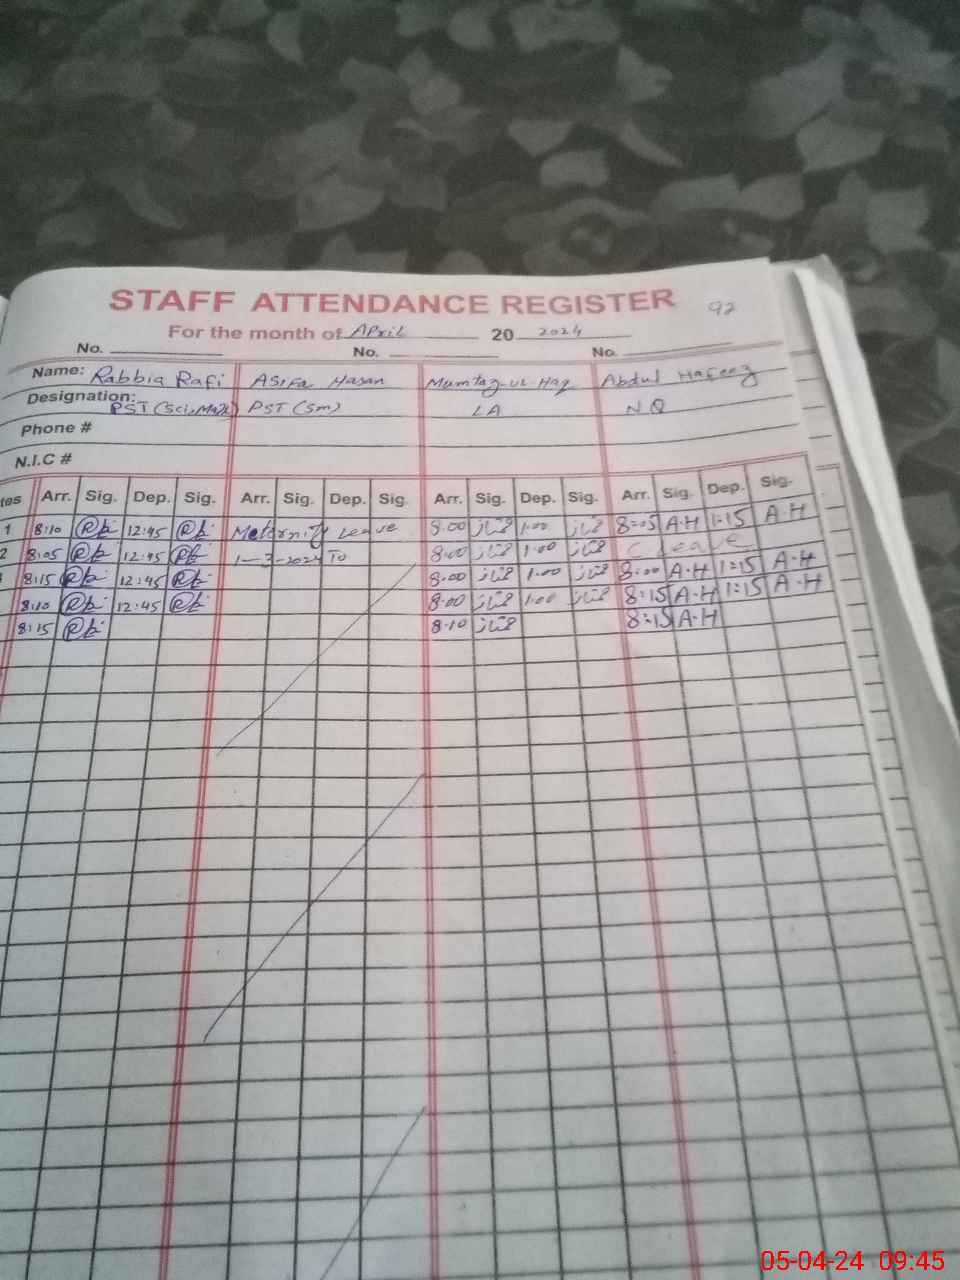 STAFF ATTENDANCE REGISTER 92
For the month of April 20 2024
No. No. No.
Name: Rabbia Rafi Asifa Hasan Mumtaz-ul-Haq Abdul Hafeez
Designation: PST (Sci, Math) PST (Sm) LA NQ
Phone #
N.I.C #
tes Arr. Sig. Dep. Sig. Arr. Sig. Dep. Sig. Arr. Sig. Dep. Sig. Arr. Sig. Dep. Sig.
1 8:10 12:45 Maternity Leave 8:00 ممتاز 1:00 ممتاز 8:05 A.H 1:15 A.H
2 8:05 12:45 1-3-2024 To 8:00 ممتاز 1:00 ممتاز C. leave
8:15 12:45 8:00 ممتاز 1:00 ممتاز 8:00 A.H 1:15 A.H
8:10 12:45 8:00 ممتاز 1:00 ممتاز 8:15 A.H 1:15 A.H
8:15 8:10 ممتاز 8:15 A.H
05-04-24 09:45